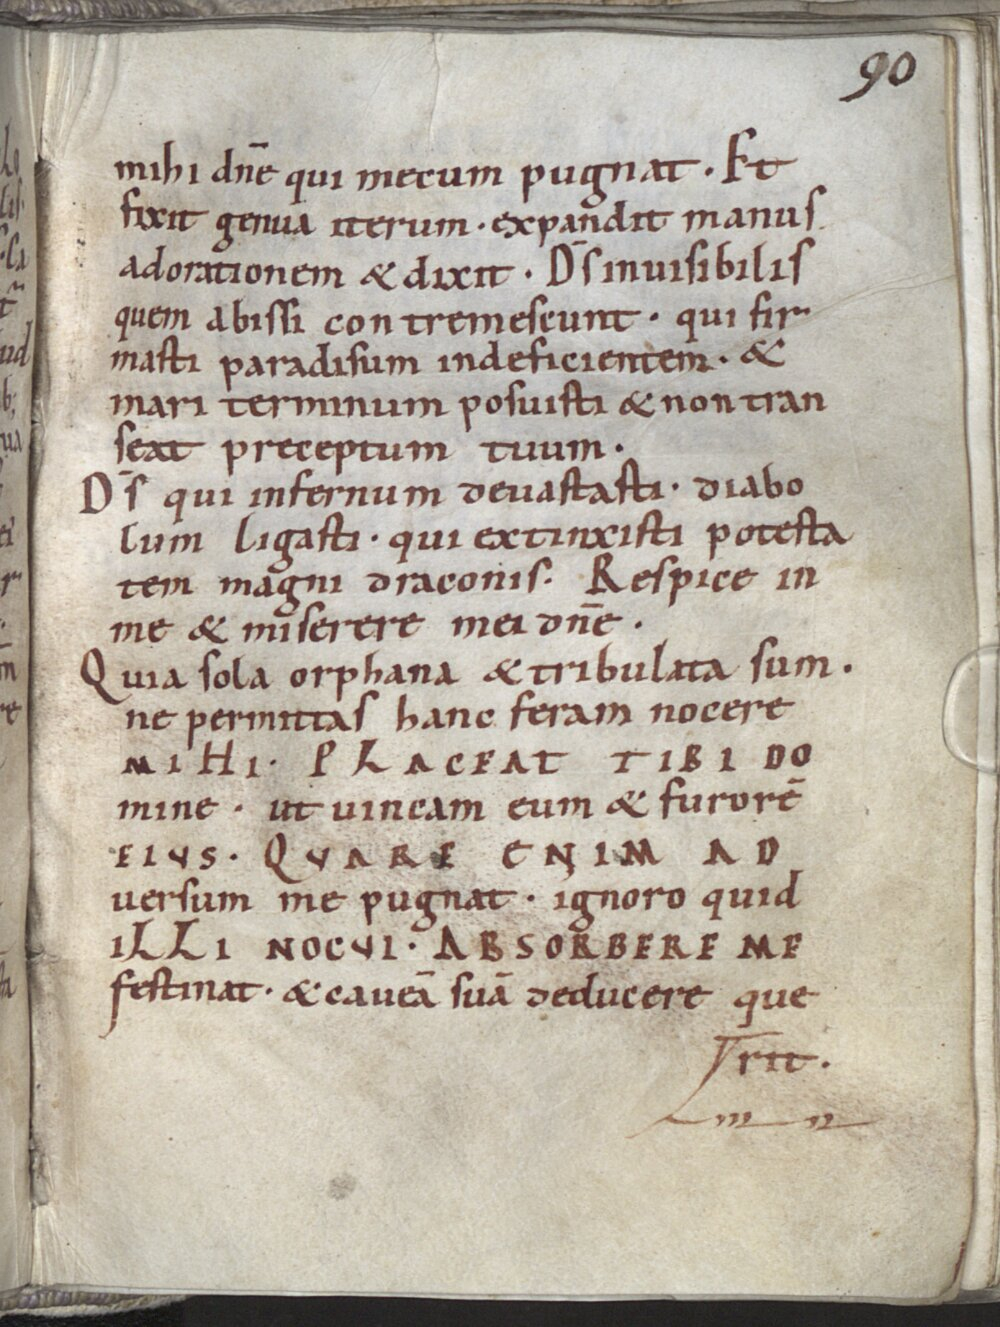 90
mihi dn̄e qui mecum pugnat. Et
fixit genua iterum. expandit manus
adorationem & dixit. Ds̄ inuisibilis
quem abissi contremescunt. qui fir
masti paradisum indeficientem. &
mari terminum posuisti & non tran
seat preceptum tuum.
Ds̄ qui infernum deuastasti. diabo
lum ligasti. qui extinxisti potesta
tem magni draconis. Respice in
me & miserere mei dn̄e.
Quia sola orphana & tribulata sum.
ne permittas hanc feram nocere
MIHI. PLACEAT TIBI DO
mine. ut uincam eum & furorē
EIVS. QVARE ENIM AD
uersum me pugnat. ignoro quid
iLLI NOCVI. ABSORBERE ME
festinat. & caueā suā deducere que
rit.